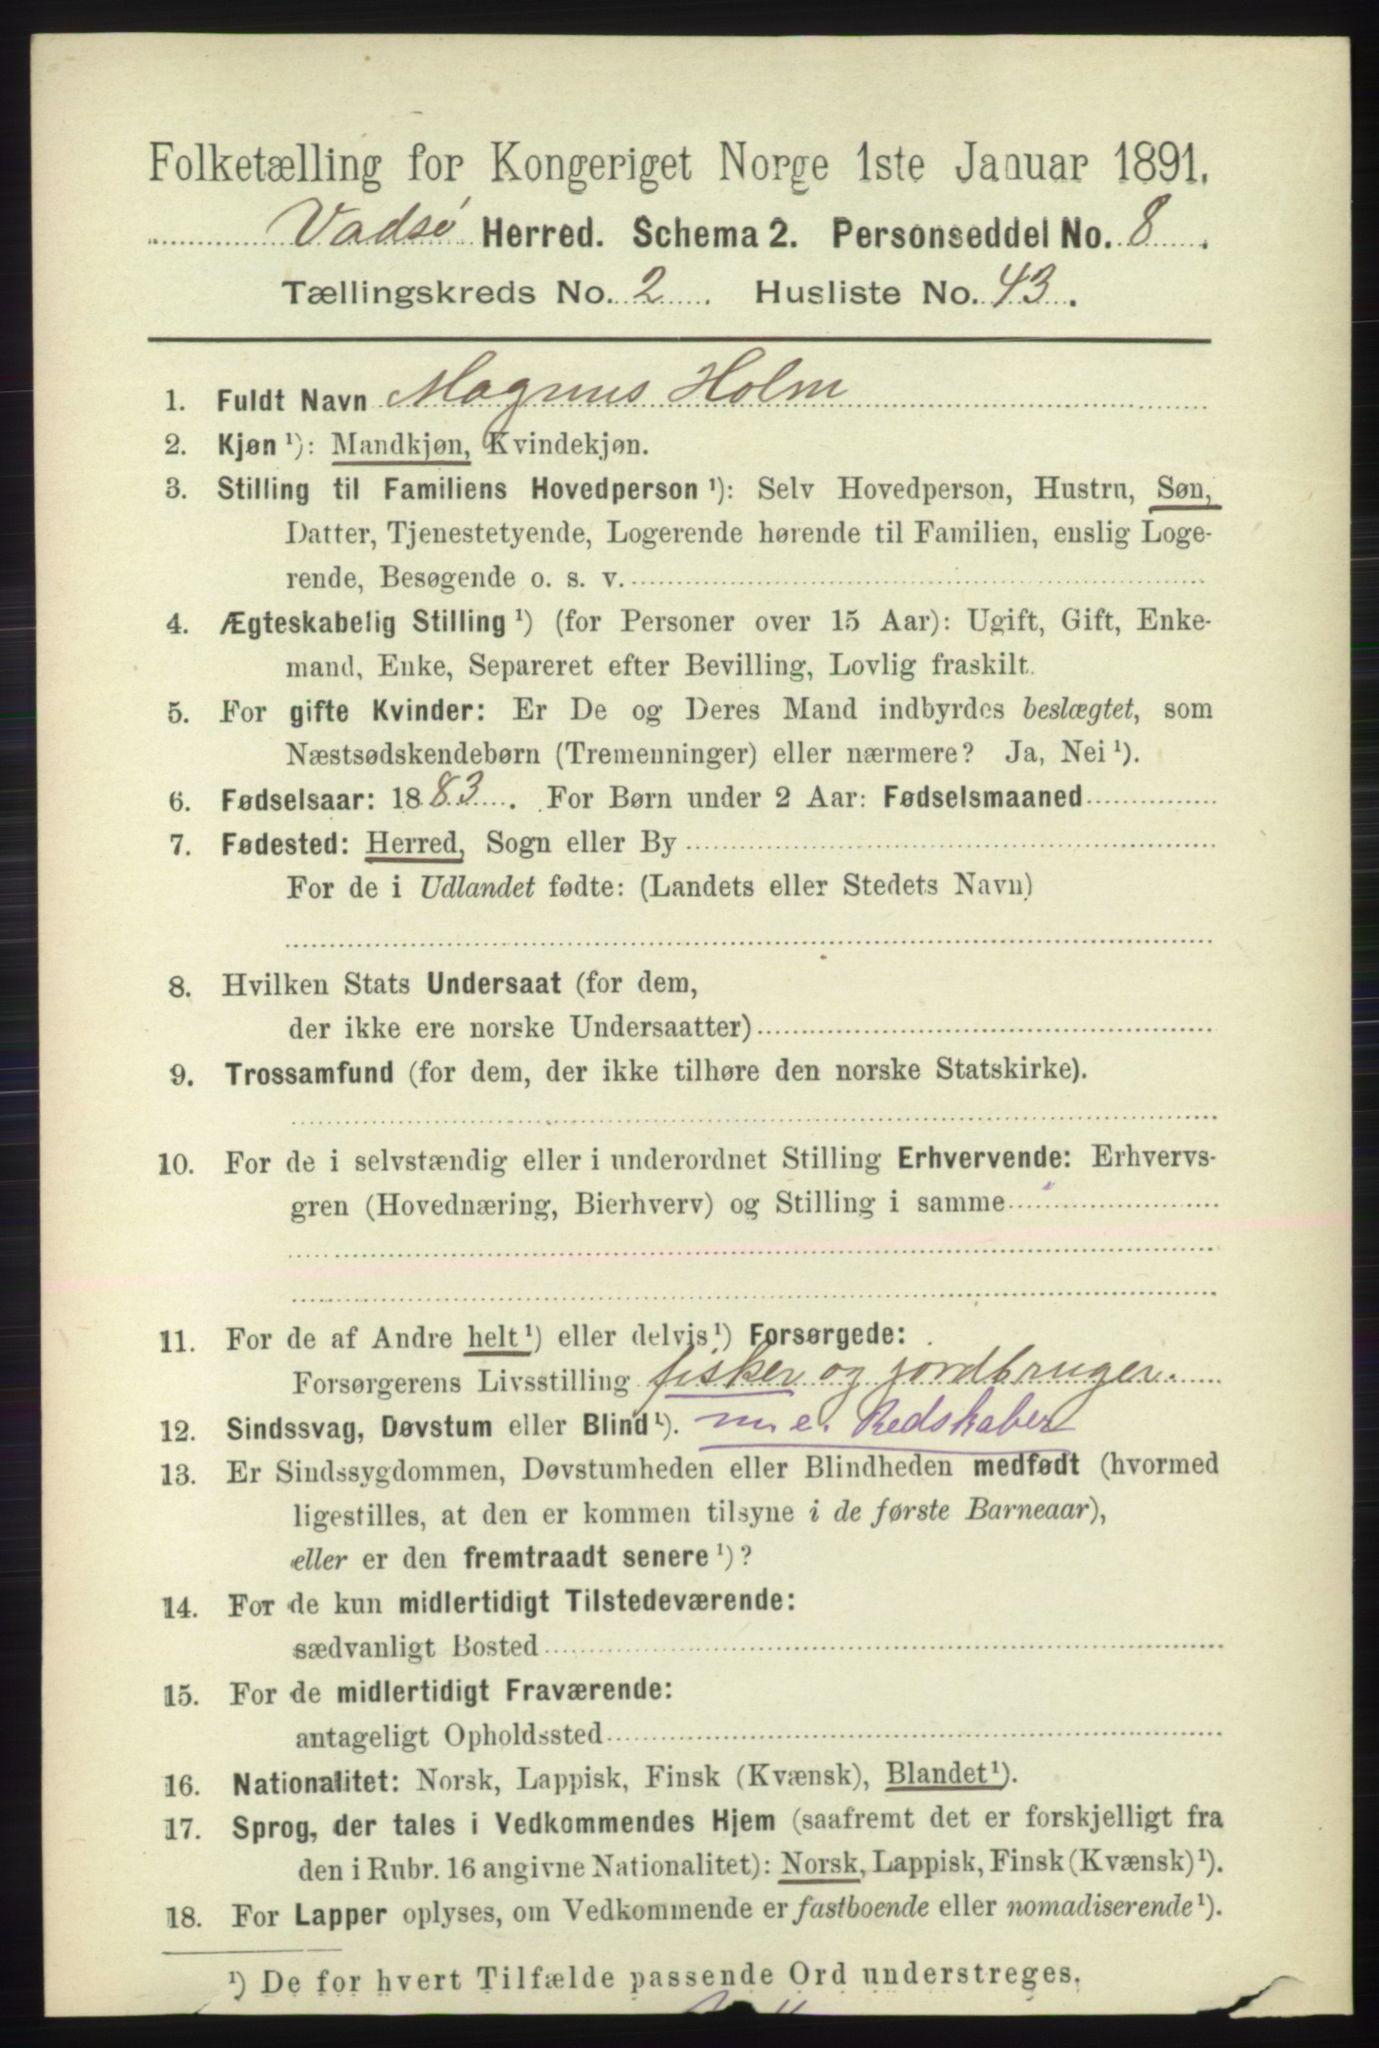 Folketælling for Kongeriget Norge 1ste Januar 1891.
Vadsø Herred. Schema 2. Personseddel No. 8.
Tællingskreds No. 2. Husliste No. 43.
1. Fuldt Navn Magnus Holm
2. Kjøn ¹): Mandkjøn, Kvindekjøn.
3. Stilling til Familiens Hovedperson ¹): Selv Hovedperson, Hustru, Søn,
Datter, Tjenestetyende, Logerende hørende til Familien, enslig Loge-
rende, Besøgende o. s. v.
4. Ægteskabelig Stilling ¹) (for Personer over 15 Aar): Ugift, Gift, Enke-
mand, Enke, Separeret efter Bevilling, Lovlig fraskilt.
5. For gifte Kvinder: Er De og Deres Mand indbyrdes beslægtet, som
Næstsødskendebørn (Tremenninger) eller nærmere? Ja, Nei ¹).
6. Fødselsaar: 1883. For Børn under 2 Aar: Fødselsmaaned
7. Fødested: Herred, Sogn eller By
For de i Udlandet fødte: (Landets eller Stedets Navn)
8. Hvilken Stats Undersaat (for dem,
der ikke ere norske Undersaatter)
9. Trossamfund (for dem, der ikke tilhøre den norske Statskirke).
10. For de i selvstændig eller i underordnet Stilling Erhvervende: Erhvervs-
gren (Hovednæring, Bierhverv) og Stilling i samme
11. For de af Andre helt ¹) eller delvis ¹) Forsørgede:
Forsørgerens Livsstilling fisker og jordbruger.
12. Sindssvag, Døvstum eller Blind ¹). m. e. Redskaber
13. Er Sindssygdommen, Døvstumheden eller Blindheden medfødt (hvormed
ligestilles, at den er kommen tilsyne i de første Barneaar),
eller er den fremtraadt senere ¹)?
14. For de kun midlertidigt Tilstedeværende:
sædvanligt Bosted
15. For de midlertidigt Fraværende:
antageligt Opholdssted
16. Nationalitet: Norsk, Lappisk, Finsk (Kvænsk), Blandet ¹).
17. Sprog, der tales i Vedkommendes Hjem (saafremt det er forskjelligt fra
den i Rubr. 16 angivne Nationalitet): Norsk, Lappisk, Finsk (Kvænsk) ¹).
18. For Lapper oplyses, om Vedkommende er fastboende eller nomadiserende ¹).
¹) De for hvert Tilfælde passende Ord understreges.